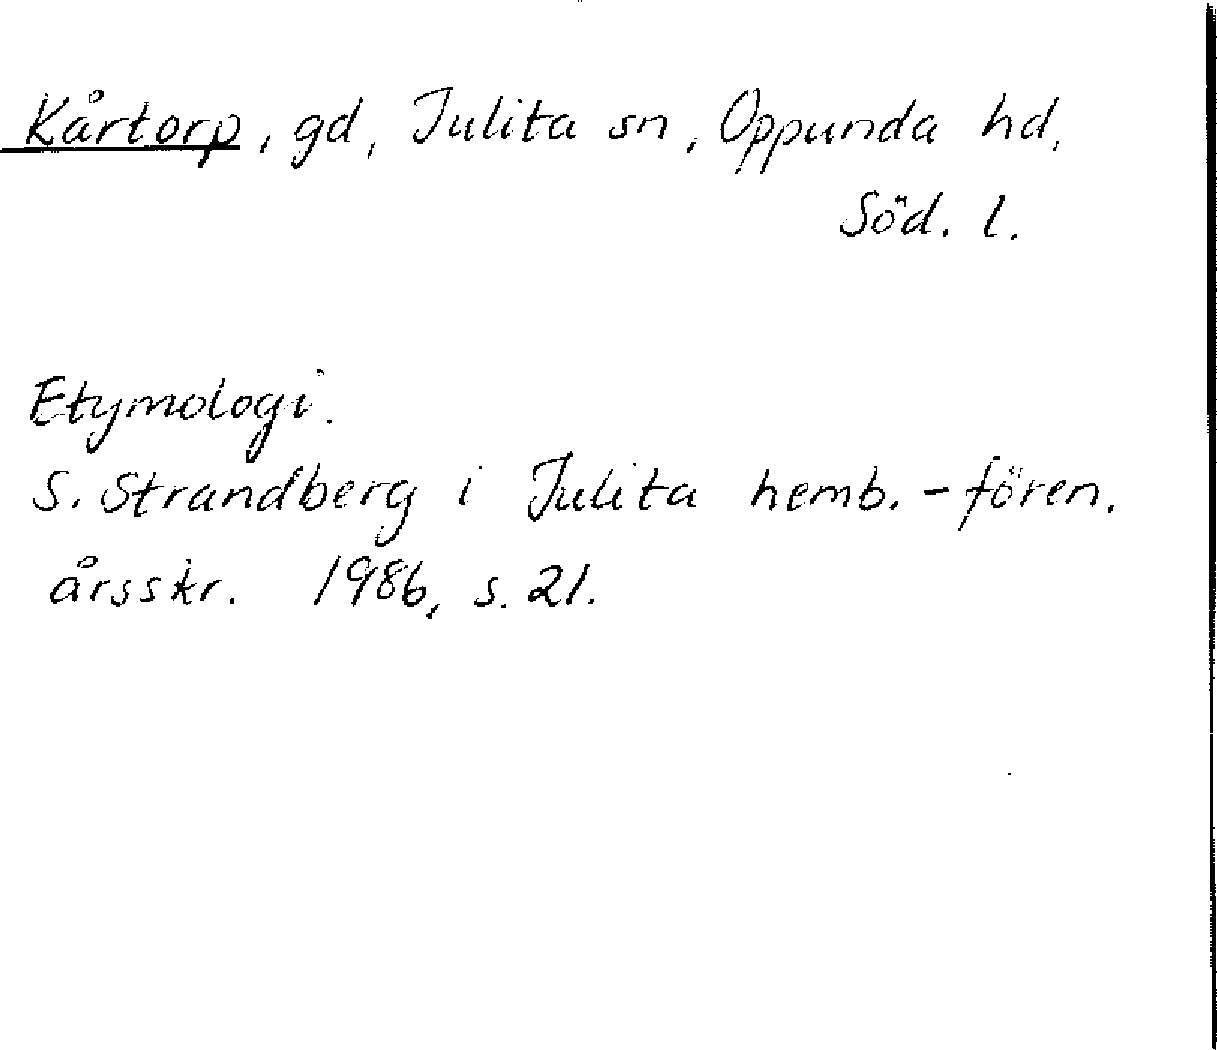 Kårtorp, gd, Julita sn, Oppunda hd,
Söd. l.
Etymologi.
S. Strandberg i Julita hemb.-fören.
årsskr. 1986, s. 21.